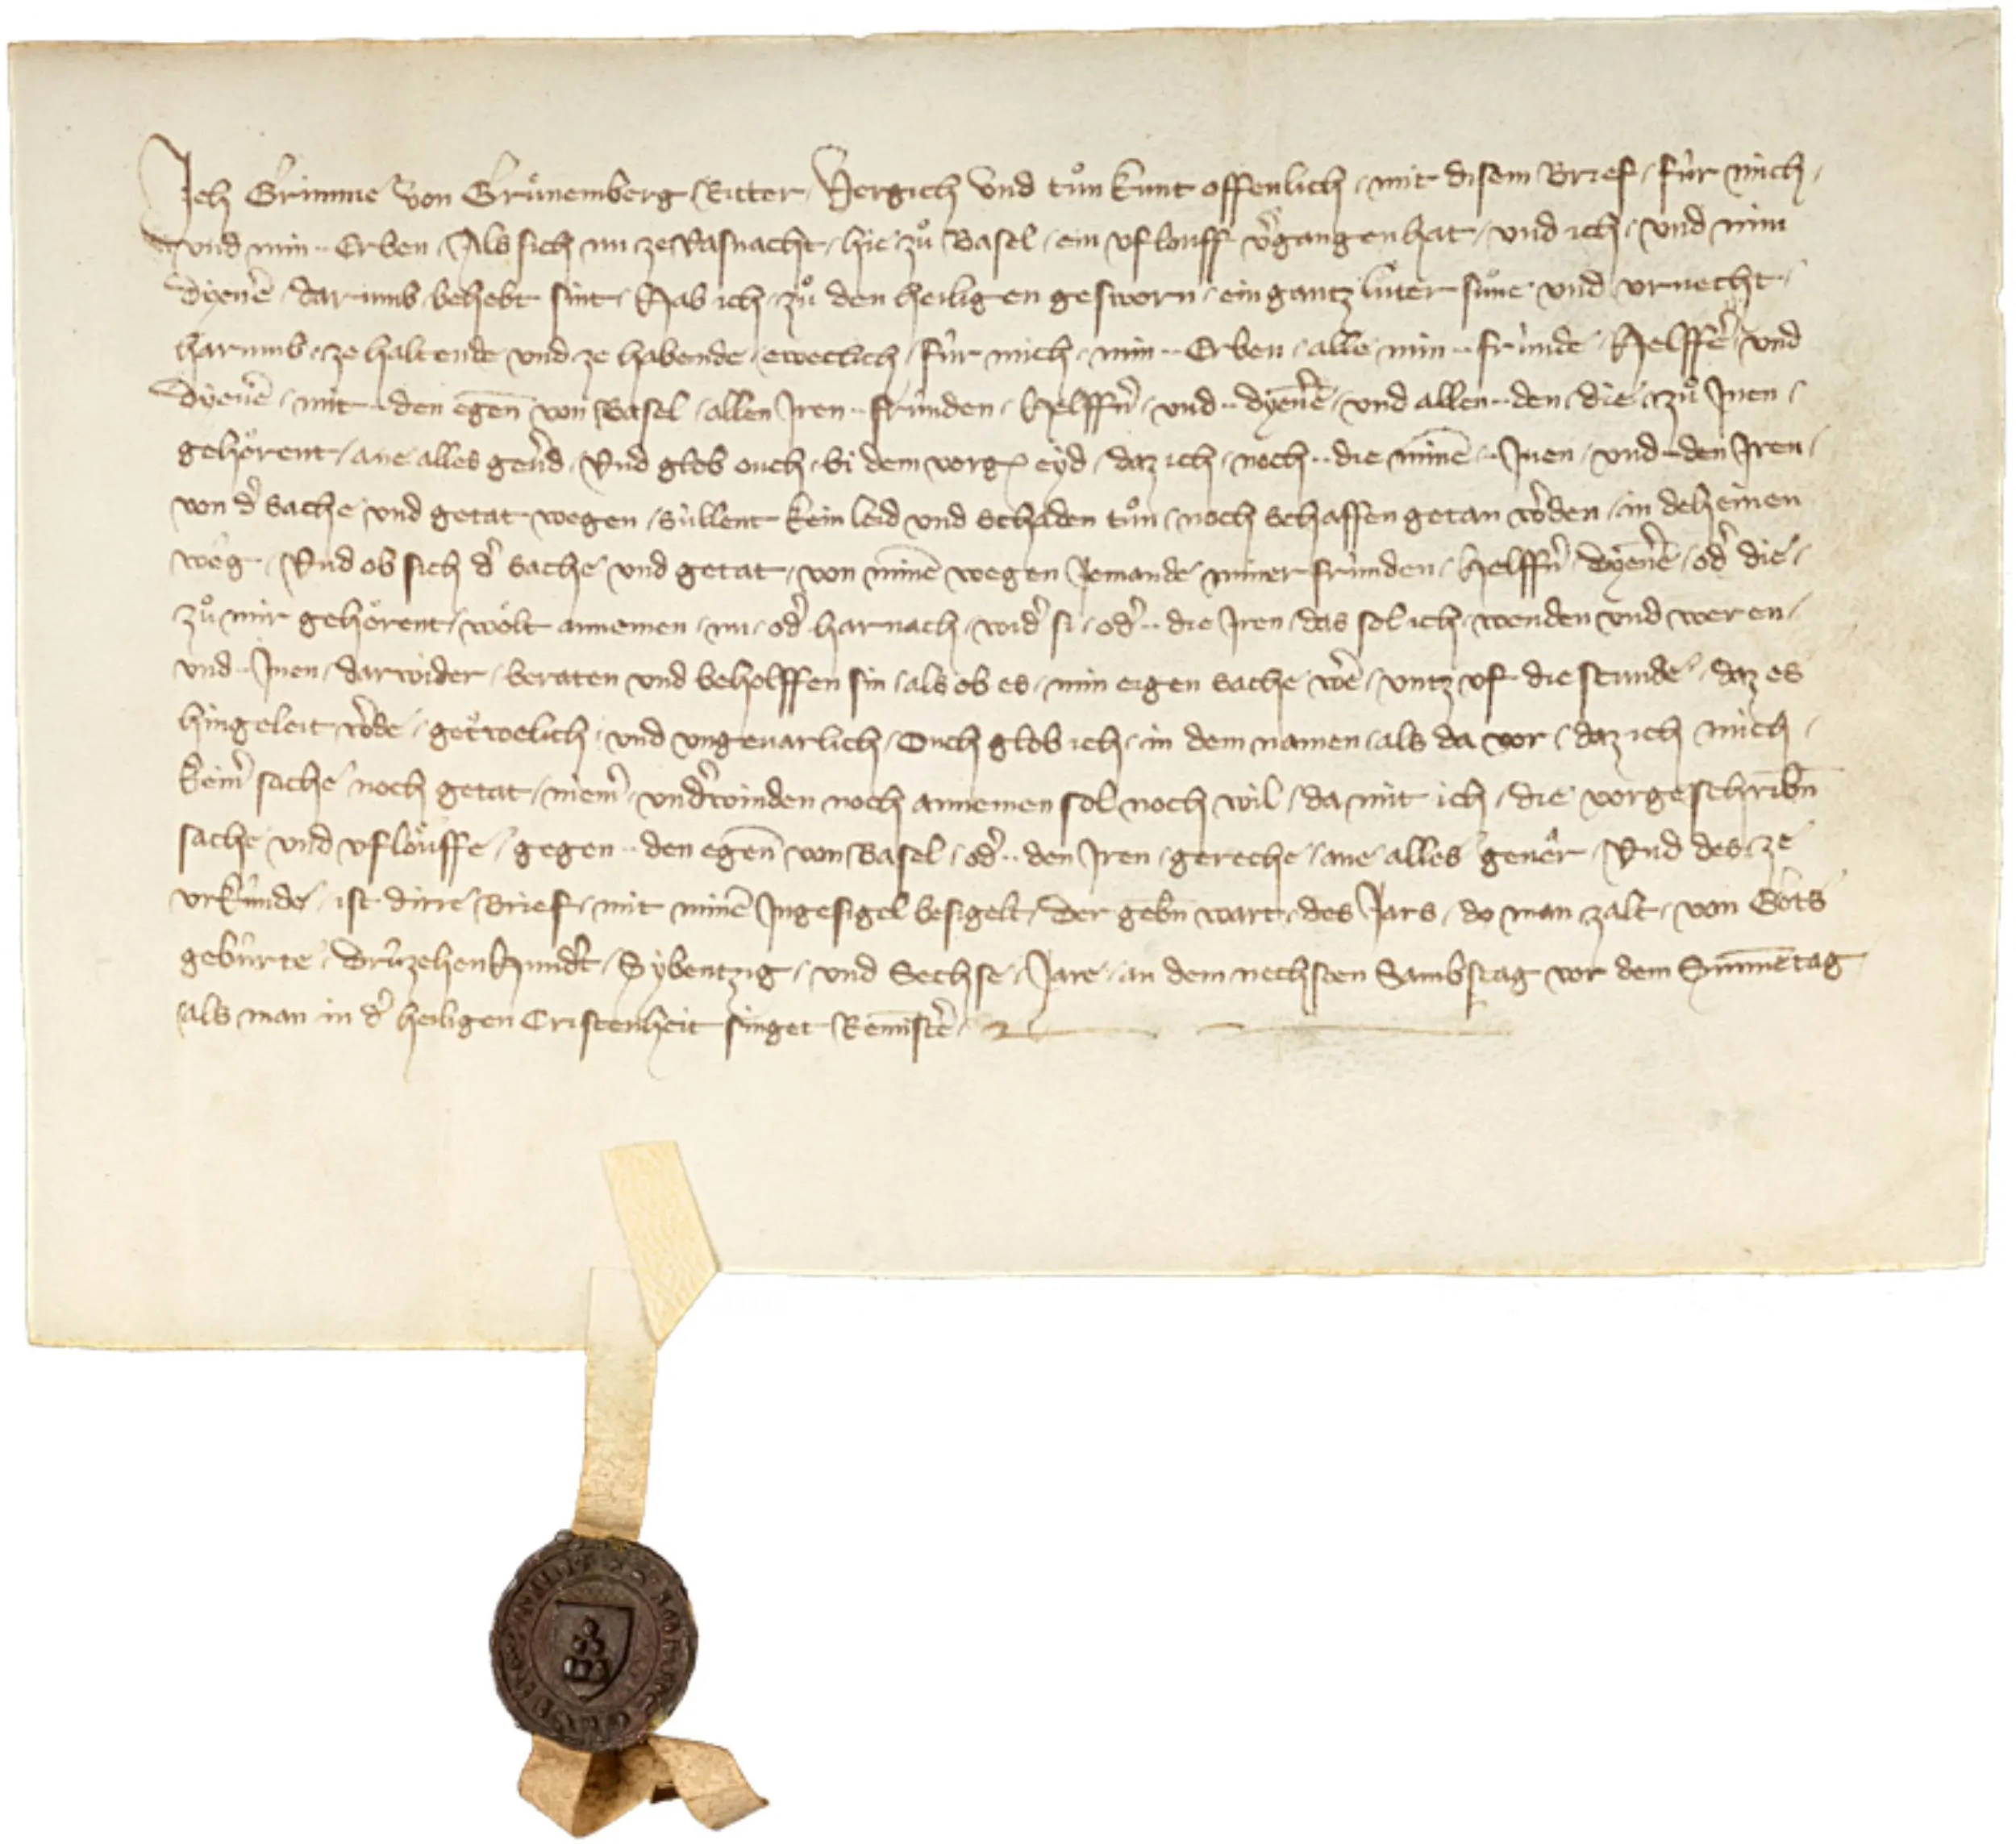 Ich Grimme von Gruͤnemberg Ritter / Vergich vnd tuͦn kunt offenlich / mit disem Brief / fuͥr mich /
vnd min ·· Erben / Als sich nu ze Vasnacht / hie zuͦ Basel / ein vflouff v̾gangen hat / vnd ich / vnd min
dyen̾e / darumb behebt sint / Hab ich / zuͦ den heiligen gesworn / ein gantz luter suͦne vnd vruecht /
harumb / ze haltende vnd ze habende / eweclich / fuͥr mich / min ·· Erben / alle min ·· fruͥnde / Helffe̾ / vnd
dyen̾e / mit ·· den egen̄ von Basel / allen Iren ·· fruͥnden / Helffn̾ / vnd ·· dyen̾e / vnd allen ·· den / die / zuͦ Inen /
gehoͤrent / ane alles geu̾d / Vnd glob ouch / bi dem vorg eyd / daz ich / noch ·· die minē ·· Inen / vnd ·· den Iren /
von d̾ sache vnd getat wegen / suͥllent kein leid vnd schaden tuͦn / noch schaffen getan w̾den / in deheinen
weg / Vnd ob sich d̾ sache vnd getat / von minē wegen Iemande miner fruͥnden / helffn̾ / dyen̾e / od̾ die /
zuͦ mir gehoͤrent / woͤlt annemen / nu / od̾ harnach / wid̾ si / od̾ ·· die Iren / das sol ich / wenden vnd weren /
vnd ·· Inen / darwider / beraten vnd beholffen sin / als ob es / min eigen sache we̾ / vntz vf die stunde / daz es
hingeleit w̾de / getruͥwelich / vnd vngeuarlich / Ouch glob ich / in dem namen / als da vor / daz ich mich /
keinr̾ sache noch getat / niem̾ / vnd̾winden noch annemen sol noch wil / da mit ich / die vorgeschribn̄
sache vnd vfloͤuffe / gegen ·· den egen̄ von Basel / od̾ ·· den Iren / gereche / ane alles geue̾r / Vnd des ze
vrkuͥnde / ist dirre Brief / mit minē Ingesigel besigelt / der gebn̄ wart / des Jars / do man zalt / von Gots
gebuͥrte / Druͥzehenhund̾t / Sybentzig / vnd Sechse / Jare / an dem nechsten Sambstag vor dem Sunnētag
als man in d̾ heiligen Cristenheit singet Remīsc̾e /